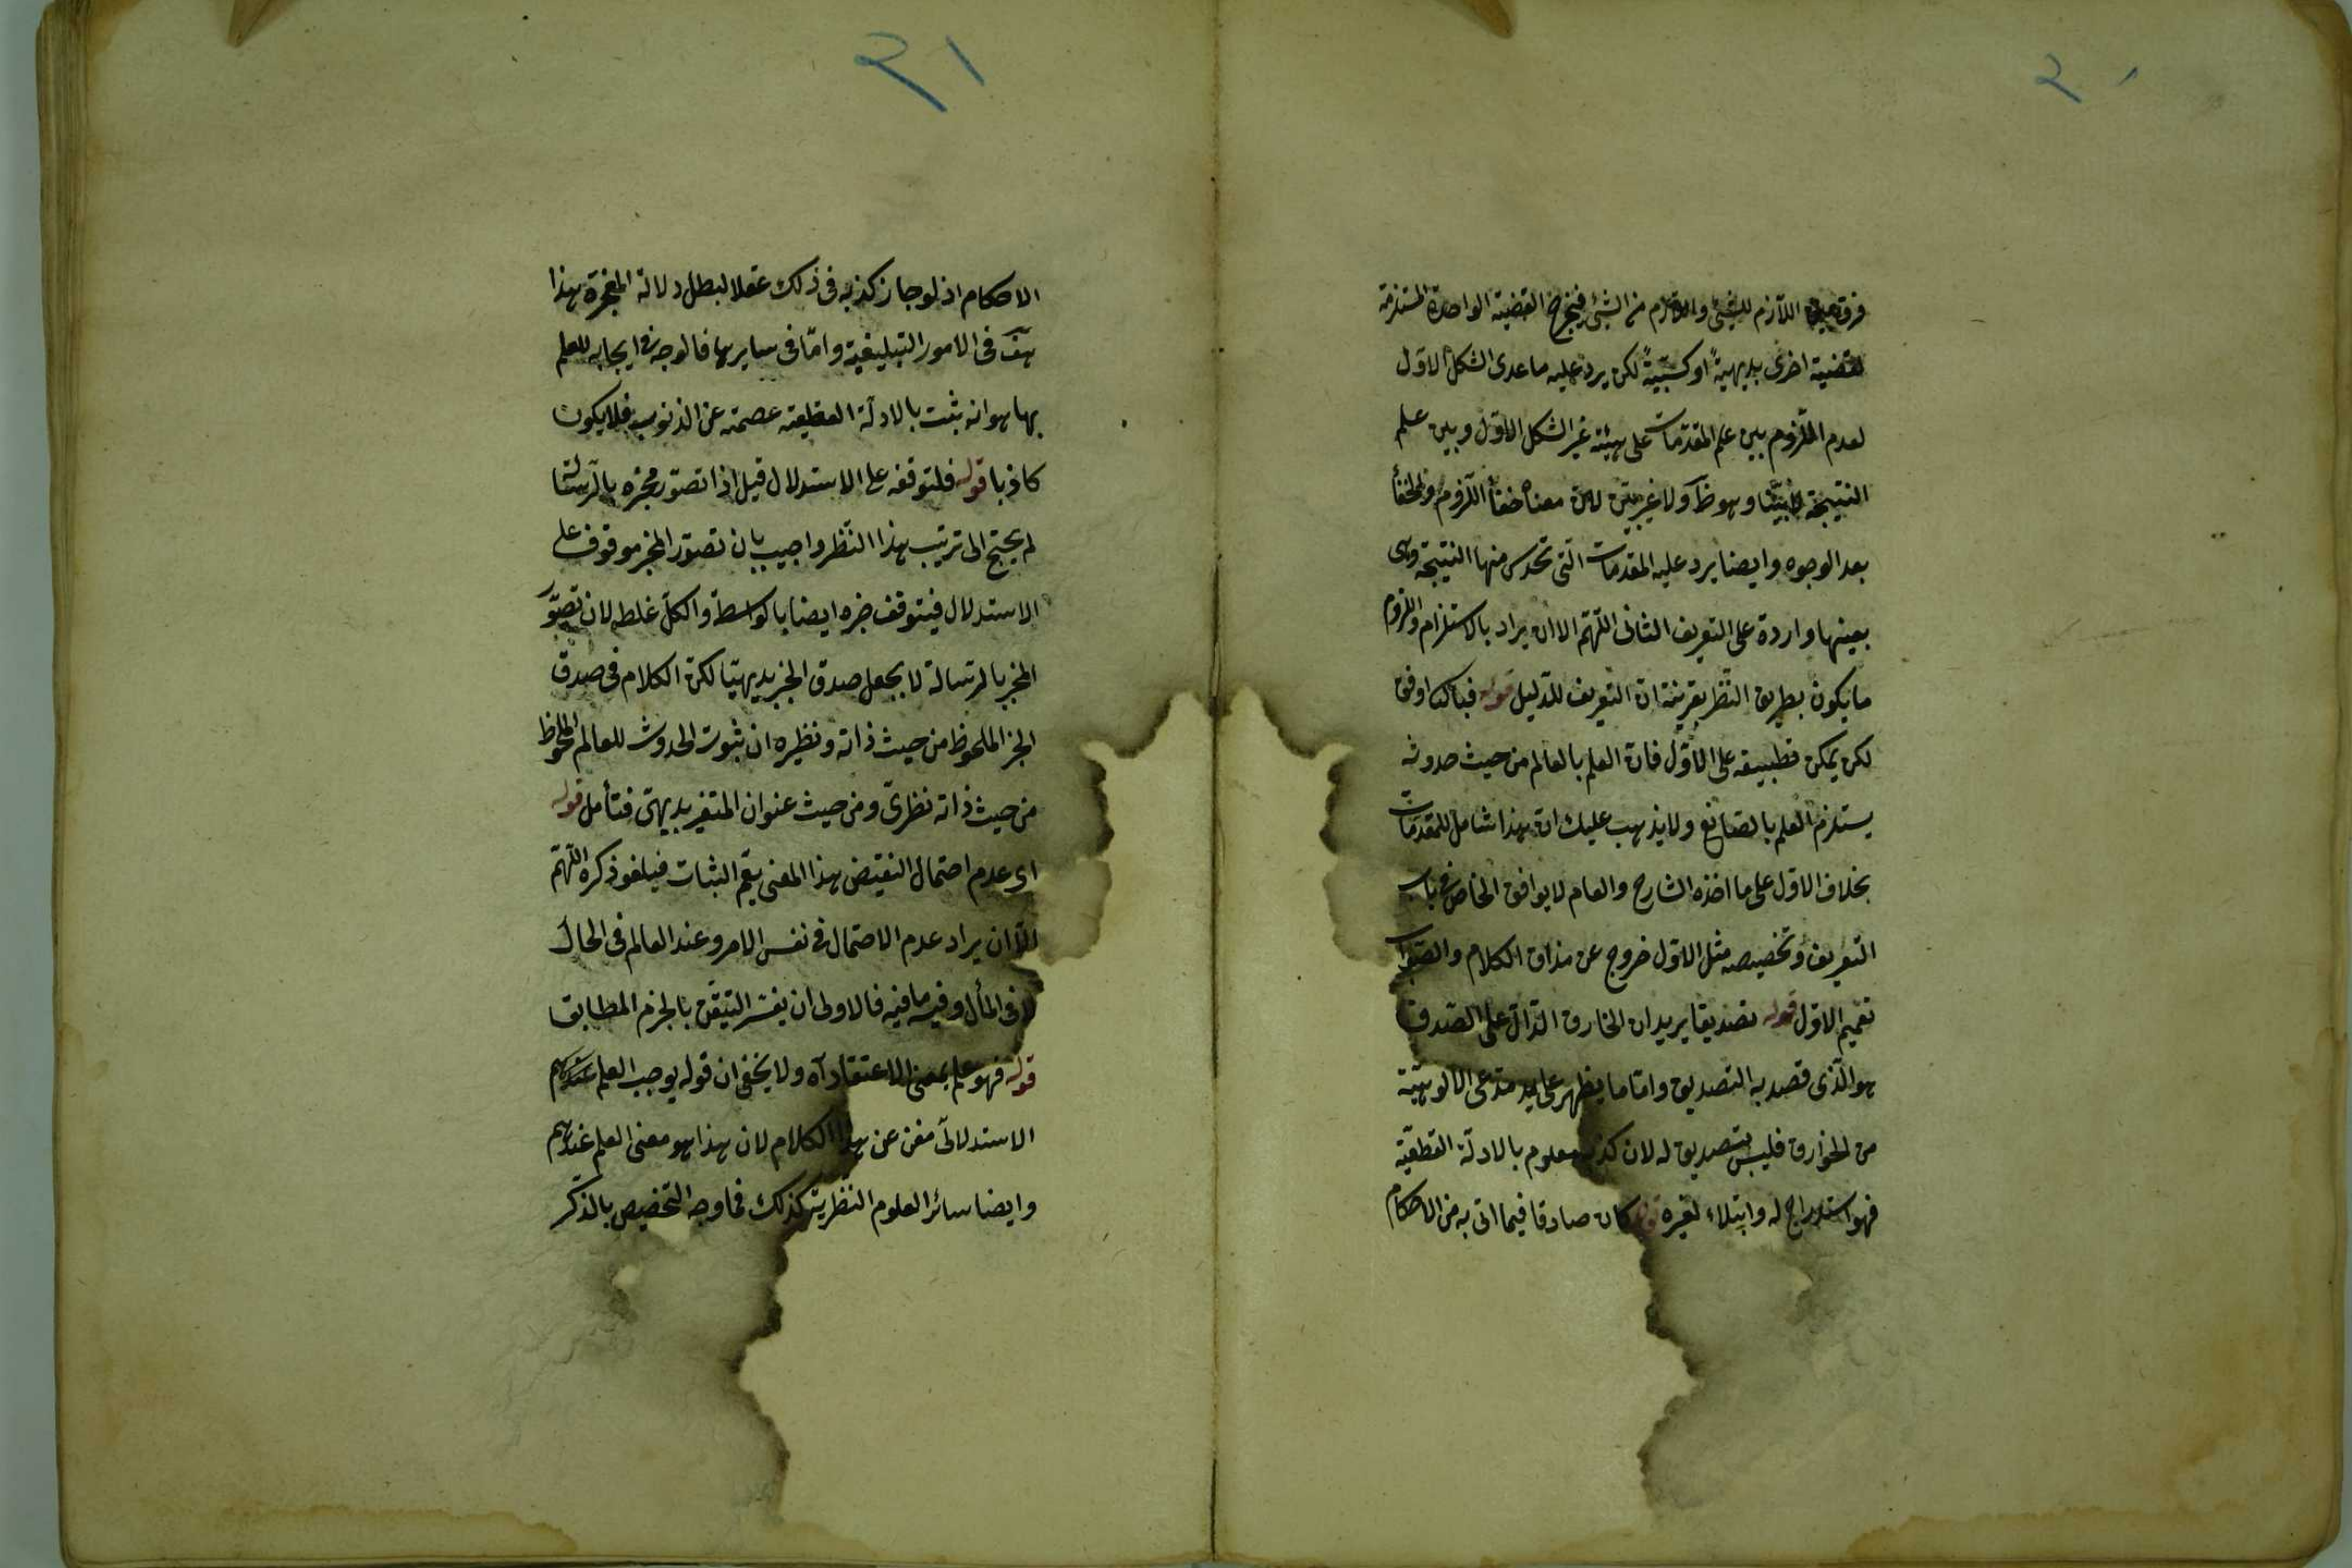 ٢٠
فرق بين اللازم للشئ واللازم من الشئ فيخرج القضية الواحدة المستلزمة
لقضية اخرى بديهية او كسبية لكن يرد عليه ما عدى الشكل الاول
لعدم اللزوم بين علم المقدمات على هيئة غير الشكل الاول وبين علم
النتيجة لا بيّنا وهو ظ ولا غير بيّن لان معناه خفأ اللزوم والخفأ
بعد الوجوه وايضا يرد عليه المقدمات التى تحدس منها النتيجة وهى
بعينها واردة على التعريف الثانى اللهم الا ان يراد بالاستلزام واللزوم
ما يكون بطريق النظر بقرينة ان التعريف للدليل قوله فبالثانى اوفق
لكن يمكن تطبيقه على الاول فان العلم بالعالم من حيث حدوثه
يستلزم العلم بالصانع ولا يذهب عليك ان هذا شامل للمقدمات
بخلاف الاول على ما اخذه الشارح والعام لا يوافق الخاص فى باب
التعريف وتخصيصه مثل الاول خروج عن مذاق الكلام والصواب
تعميم الاول قوله تصديقا يريد ان الخارق الدال على الصدق
هو الذى قصد به التصديق واما ما يظهر على يد مدعى الالوهية
من الخوارق فليس بتصديق له لان كذبه معلوم بالادلة القطعية
فهو استدراج له وابتلاء لغيره قوله كان صادقا فيما اتى به من الاحكام
٢١
الاحكام اذ لو جاز كذبه فى ذلك عقلا لبطل دلالة المعجزة هذا
هفّ فى الامور التبليغية واما فى سايرها فالوجه فى ايجابه للعلم
بها هو انه ثبت بالادلة القطعية عصمته عن الذنوب فلا يكون
كاذبا قوله فلتوقفه على الاستدلال قيل اذا تصور مخبره بالرسالة
لم يحتج الى ترتيب هذا النظر واجيب بان تصور المخبر موقوف على
الاستدلال فيتوقف خبره ايضا بالواسطة والكل غلط لان تصوّر
المخبر بالرسالة لا يجعل صدق الخبر بديهيا لكن الكلام فى صدق
الخبر الملحوظ من حيث ذاته ونظيره ان ثبوت الحدوث للعالم الملحوظ
من حيث ذاته نظرى ومن حيث عنوان المتغير بديهى فتأمل قوله
اى عدم احتمال النقيض هذا المعنى يعم الثبات فيلغو ذكره اللهم
الا ان يراد عدم الاحتمال فى نفس الامر وعند العالم فى الحال
لا فى المأل وفيه ما فيه فالاولى ان يفسر التيقن بالجزم المطابق
قوله فهو علم بمعنى الاعتقاد آه ولا يخفى ان قوله يوجب العلم عندهم
الاستدلالى مغن عن هذا الكلام لان هذا هو معنى العلم عندهم
وايضا سائر العلوم النظرية كذلك فما وجه التخصيص بالذكر